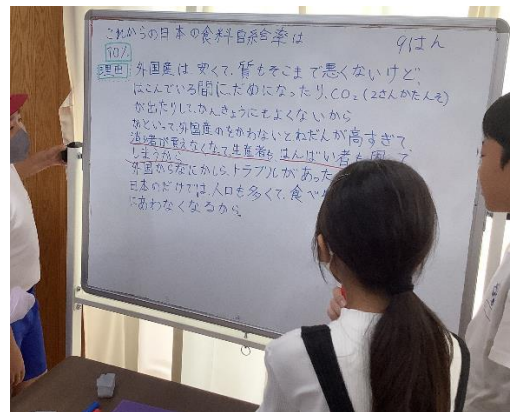 これからの日本の食料自給率は 9はん
70%
理由 外国産は安くて、質もそこまで悪くないけど、
はこんでいる間にだめになったり、CO2(2さんかたんそ)
が出たりして、かんきょうにもよくないから
かといって、外国産のをかわないとねだんが高すぎて
消ひ者が買えなくなって、生産者も はんばい者も困って
しまうから
外国からなにかしら、トラブルがあった
日本のだけでは人口も多くて、食べ
にあわなくなるから。